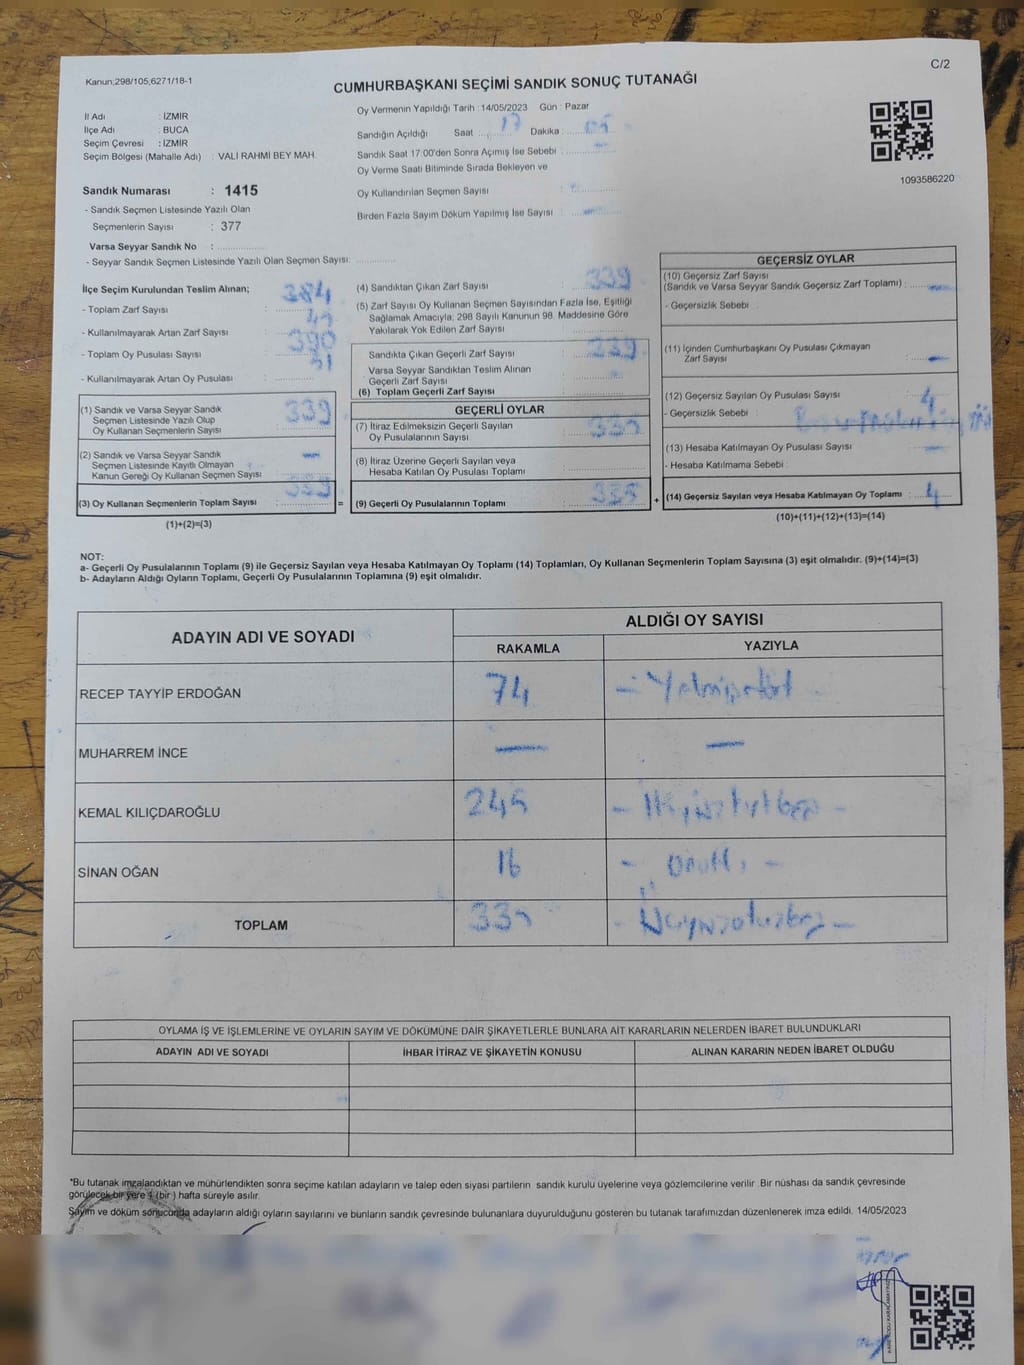 Kanun;298/105,6271/18-1
C/2
CUMHURBAŞKANI SEÇİMİ SANDIK SONUÇ TUTANAĞI
İl Adı : İZMİR
İlçe Adı : BUCA
Seçim Çevresi : İZMİR
Seçim Bölgesi (Mahalle Adı) : VALİ RAHMİ BEY MAH.
Oy Vermenin Yapıldığı Tarih : 14/05/2023 Gün : Pazar
Sandığın Açıldığı Saat : 17 Dakika : 05
Sandık Saat 17:00'den Sonra Açımış İse Sebebi : —
Oy Verme Saati Bitiminde Sırada Bekleyen ve
Oy Kullandırılan Seçmen Sayısı :
Birden Fazla Sayım Döküm Yapılmış İse Sayısı : —
1093586220
Sandık Numarası : 1415
- Sandık Seçmen Listesinde Yazılı Olan
Seçmenlerin Sayısı : 377
Varsa Seyyar Sandık No :
- Seyyar Sandık Seçmen Listesinde Yazılı Olan Seçmen Sayısı:
İlçe Seçim Kurulundan Teslim Alınan;
- Toplam Zarf Sayısı : 384
- Kullanılmayarak Artan Zarf Sayısı :
- Toplam Oy Pusulası Sayısı : 390
- Kullanılmayarak Artan Oy Pusulası : 51
(1) Sandık ve Varsa Seyyar Sandık
Seçmen Listesinde Yazılı Olup
Oy Kullanan Seçmenlerin Sayısı : 339
(2) Sandık ve Varsa Seyyar Sandık
Seçmen Listesinde Kayıtlı Olmayan
Kanun Gereği Oy Kullanan Seçmen Sayısı : —
(3) Oy Kullanan Seçmenlerin Toplam Sayısı : 339
(1)+(2)=(3)
(4) Sandıktan Çıkan Zarf Sayısı : 339
(5) Zarf Sayısı Oy Kullanan Seçmen Sayısından Fazla İse, Eşitliği
Sağlamak Amacıyla, 298 Sayılı Kanunun 98. Maddesine Göre
Yakılarak Yok Edilen Zarf Sayısı :
Sandıkta Çıkan Geçerli Zarf Sayısı : 339
Varsa Seyyar Sandıktan Teslim Alınan
Geçerli Zarf Sayısı :
(6) Toplam Geçerli Zarf Sayısı
GEÇERLİ OYLAR
(7) İtiraz Edilmeksizin Geçerli Sayılan
Oy Pusulalarının Sayısı : 335
(8) İtiraz Üzerine Geçerli Sayılan veya
Hesaba Katılan Oy Pusulası Toplamı :
= (9) Geçerli Oy Pusulalarının Toplamı : 335 +
GEÇERSİZ OYLAR
(10) Geçersiz Zarf Sayısı
(Sandık ve Varsa Seyyar Sandık Geçersiz Zarf Toplamı) : —
- Geçersizlik Sebebi :
(11) İçinden Cumhurbaşkanı Oy Pusulası Çıkmayan
Zarf Sayısı : —
(12) Geçersiz Sayılan Oy Pusulası Sayısı : 4
- Geçersizlik Sebebi :
(13) Hesaba Katılmayan Oy Pusulası Sayısı : —
- Hesaba Katılmama Sebebi :
(14) Geçersiz Sayılan veya Hesaba Katılmayan Oy Toplamı : 4
(10)+(11)+(12)+(13)=(14)
NOT:
a- Geçerli Oy Pusulalarının Toplamı (9) ile Geçersiz Sayılan veya Hesaba Katılmayan Oy Toplamı (14) Toplamları, Oy Kullanan Seçmenlerin Toplam Sayısına (3) eşit olmalıdır. (9)+(14)=(3)
b- Adayların Aldığı Oyların Toplamı, Geçerli Oy Pusulalarının Toplamına (9) eşit olmalıdır.
ADAYIN ADI VE SOYADI ALDIĞI OY SAYISI
RAKAMLA YAZIYLA
RECEP TAYYİP ERDOĞAN 74 - Yetmişdört -
MUHARREM İNCE — —
KEMAL KILIÇDAROĞLU 245 - İkiyüzkırkbeş -
SİNAN OĞAN 16 - Onaltı -
TOPLAM 335 - Üçyüzotuzbeş -
OYLAMA İŞ VE İŞLEMLERİNE VE OYLARIN SAYIM VE DÖKÜMÜNE DAİR ŞİKAYETLERLE BUNLARA AİT KARARLARIN NELERDEN İBARET BULUNDUKLARI
ADAYIN ADI VE SOYADI İHBAR İTİRAZ VE ŞİKAYETİN KONUSU ALINAN KARARIN NEDEN İBARET OLDUĞU
*Bu tutanak imzalandıktan ve mühürlendikten sonra seçime katılan adayların ve talep eden siyasi partilerin sandık kurulu üyelerine veya gözlemcilerine verilir. Bir nüshası da sandık çevresinde
görülecek bir yere 1 (bir ) hafta süreyle asılır.
Sayım ve döküm sonucunda adayların aldığı oyların sayılarını ve bunların sandık çevresinde bulunanlara duyurulduğunu gösteren bu tutanak tarafımızdan düzenlenerek imza edildi. 14/05/2023